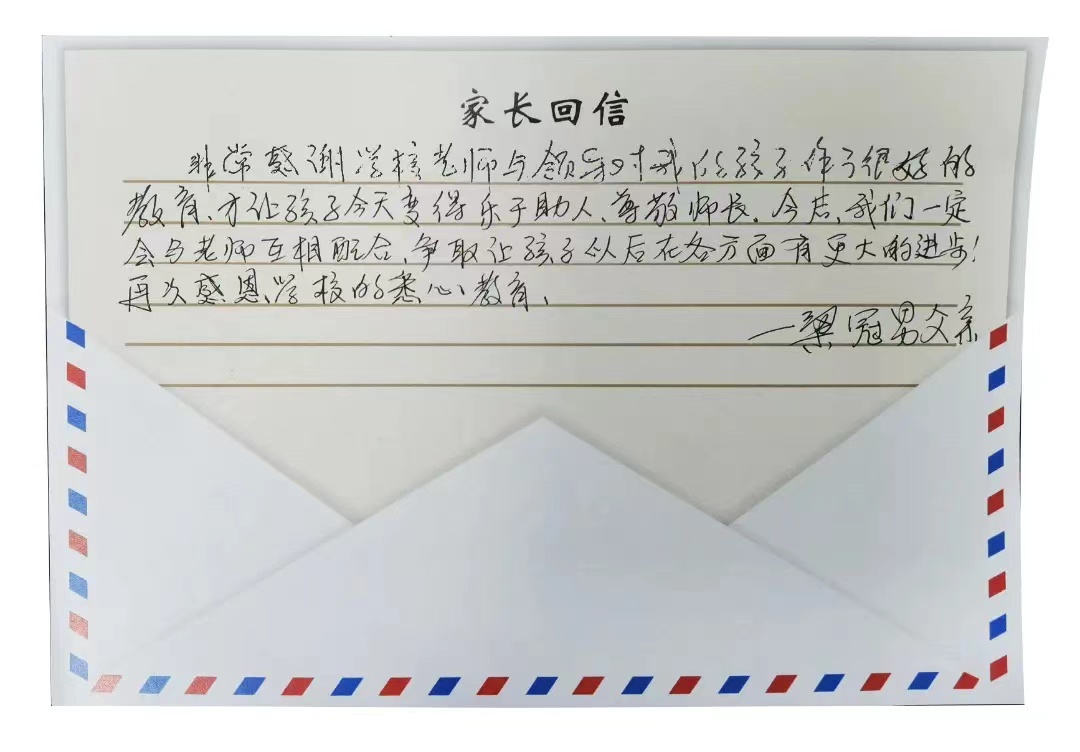 家长回信
非常感谢学校老师与领导对我们孩子作了很好的
教育、才让孩子今天变得乐于助人、尊敬师长。今后、我们一定
会与老师互相配合、争取让孩子以后在各方面有更大的进步!
再次感恩、学校的悉心教育、
—梁冠男父亲